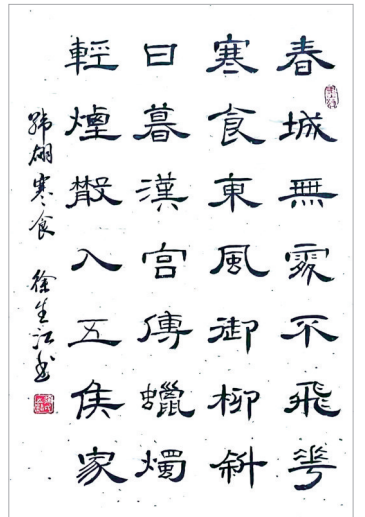 春城無處不飛花
寒食東風御柳斜
日暮漢宮傳蠟燭
輕煙散入五侯家
韓翃寒食 徐生江書